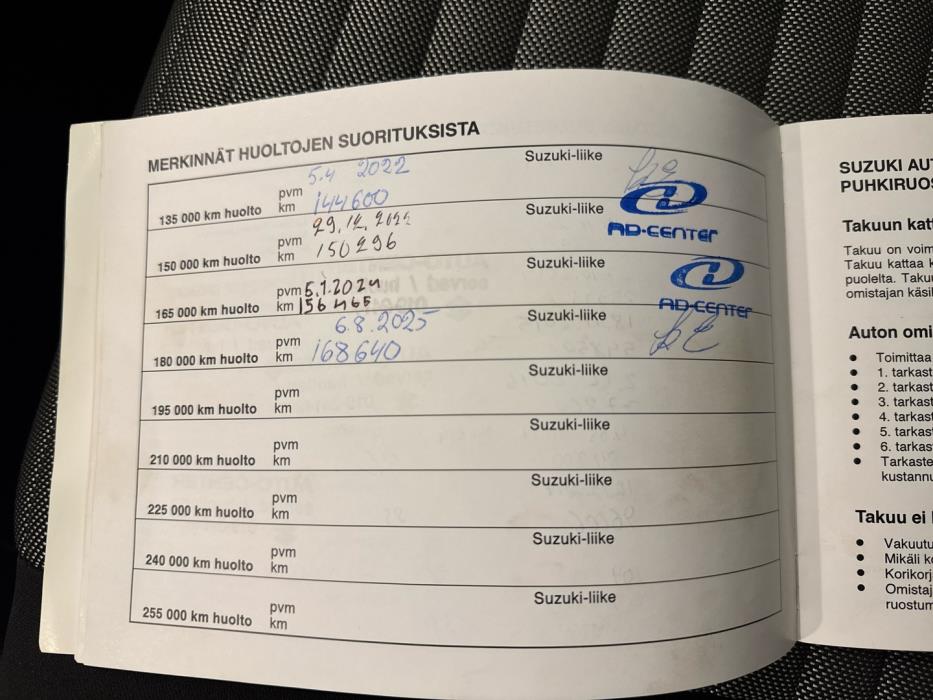 MERKINNÄT HUOLTOJEN SUORITUKSISTA
135 000 km huolto pvm 5.4 2022 Suzuki-liike
km 144600
150 000 km huolto pvm 29.12.2022 Suzuki-liike
km 150296
AD-CENTER
165 000 km huolto pvm 5.1.2024 Suzuki-liike
km 156465
AD-CENTER
180 000 km huolto pvm 6.8.2025 Suzuki-liike
km 168640
195 000 km huolto pvm Suzuki-liike
km
210 000 km huolto pvm Suzuki-liike
km
225 000 km huolto pvm Suzuki-liike
km
240 000 km huolto pvm Suzuki-liike
km
255 000 km huolto pvm Suzuki-liike
km
SUZUKI AU
PUHKIRUOS
Takuun katt
Takuu on voim
Takuu kattaa k
puolelta. Takuu
omistajan käsik
Auton omi
• Toimittaa
• 1. tarkast
• 2. tarkast
• 3. tarkast
• 4. tarkast
• 5. tarkast
• 6. tarkas
• Tarkaste
kustannu
Takuu ei
• Vakuutu
• Mikäli k
• Korikorj
• Omistaj
ruostum